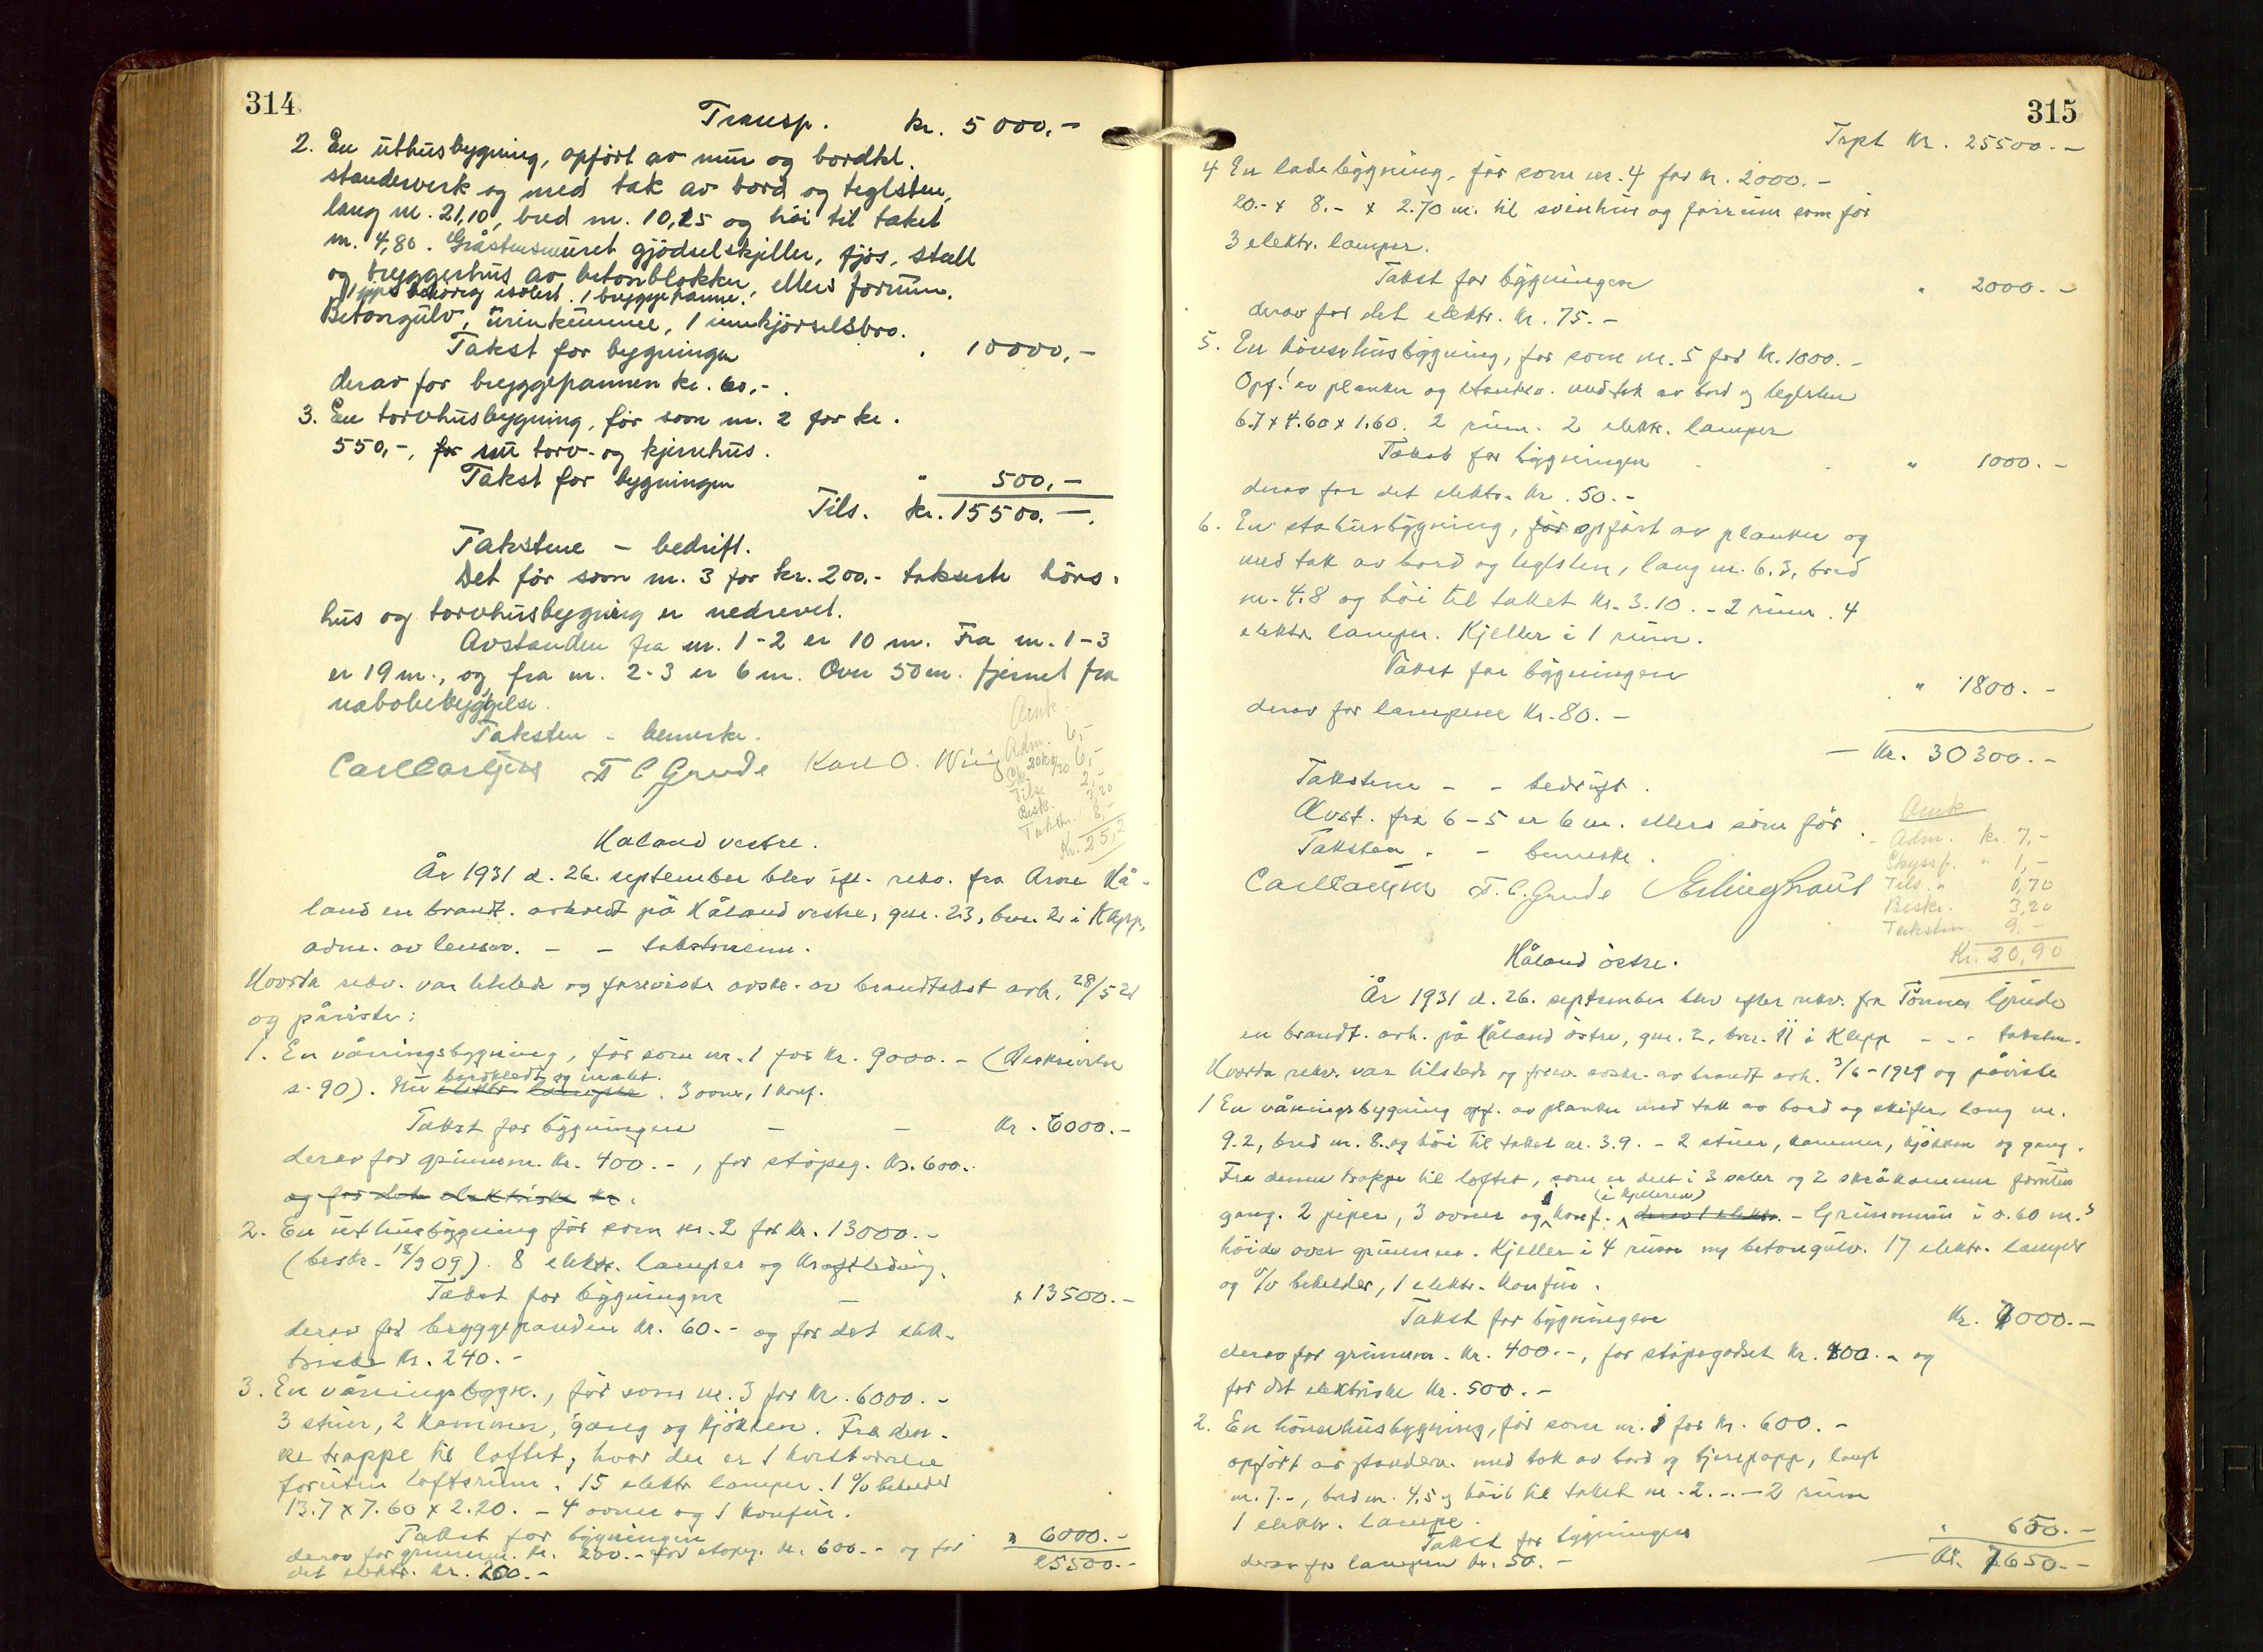 314
Transp. kr. 5000,-
2. En uthusbygning, opført av mur og bordkl.
standerverk og med tak av bord og teglsten,
lang m. 21,10, bred m. 10,25 og höi til taket
m. 4,80. Gråstensmuret gjödselskjeller, fjös, stall
og bryggerhus av betonblokker, ellers forrum.
1 pipe behörig isolert. 1 bryggepanne.
Betongulv, urinkumme, 1 innkjörselsbro.
Takst for bygningen " 10000,-
derav for bryggepannen kr. 60,-.
3. En torvhusbygning, för som nr. 2 for kr.
550,-, for nu torv- og kjernehus.
Takst for bygningen " 500,-
Tils. kr. 15500.-.
Takstene - bedrift.
Det för som nr. 3 for kr. 200,- takserte höns-
hus og torvhusbygning er nedrevet.
Avstanden fra nr. 1-2 er 10 m. Fra nr. 1-3
er 19 m., og fra nr. 2-3 er 6 m. Over 50 m. fjernet fra
nabobebyggelse.
Taksten - bemerke.
F C Grude Karl O. Wiig
Amk.
Adm. 6,-
6,-
Tils. 2,-
Besk. 3,20
Takstm. 8,-
Kr. 25,2
Håland vestre.
År 1931 d. 26. september blev ift. rekv. fra Arne Hå-
land en brandt. avholdt på Håland vestre, gnr. 23, bnr. 2 i Klepp,
adm. av lensm. - - takstmenn.
Hvorda rekv. var tilstede og foreviste avskr. av brandtakst avh. 28/5 21
og påviste:
1. En våningsbygning, för som nr. 1 for kr. 9000.- (Beskrivelse
s. 90). Nu elektr. lampe bordklædt og malet. 3 ovner, 1 komf.
Takst for bygningen - - kr. 6000.-
derav for grunnm. kr. 400.-, for stöpeg. kr. 600.-
og for det elektriske kr.
2. En uthusbygning för som nr. 2 for kr. 13000.-
(beskr. 18/9 09). 8 elektr. lamper og kraftledning.
Takst for bygningen - " 13500.-
derav for bryggepanden kr. 60.- og for det elek-
triske kr. 240.-
3. En våningsbygn., för som nr. 3 for kr. 6000.-
3 stuer, 2 kammer, gang og kjökken. Fra den-
ne trappe til loftet, hvor der er 1 kvistværelse
foruten loftsrum. 15 elektr. lamper. 1 % beholder
13.7 x 7.60 x 2.20. - 4 ovner og 1 komfur.
Takst for bygningen " 6000.-
derav for grunnm. kr. 200.- for stöpeg. kr. 600.- og for 25500.-
det elektr. kr. 200.-
315
Trpt kr. 25500.-
4 En ladebygning, för som nr. 4 for kr. 2000.-
20.- x 8.- x 2.70 m. til svinhus og forrum som för
3 elektr. lamper.
Takst for bygningen " 2000.-
derav for det elektr. kr. 75.-
5. En hönsehusbygning, för som nr. 5 for kr. 1000.-
Opf. av planker og standv. med tak av bord og teglsten
6.7 x 4.60 x 1.60. 2 rum. 2 elektr. lamper
Takst for bygningen " 1000.-
derav for det elektr. kr. 50.-
6. En stabursbygning, för opfört av planker og
med tak av bord og teglsten, lang m. 6.3, bred
m. 4.8 og höi til taket kr. 3.10. - 2 rum. 4
elektr. lamper. Kjeller i 1 rum.
Takst for bygningen " 1800.-
derav for lampene kr. 80.-
- kr. 30300.-
Takstene - - bedrift.
Avst. fra 6-5 er 6 m. ellers som för.
Taksten - - bemerke.
F. C. Grude
Amk
Adm. kr. 7,-
Skyssp. " 1,-
Tils. " 0,70
Beskr. 3,20
Takstm. 9.-
Kr. 20,90
Håland östre.
År 1931 d. 26. september blev efter rekv. fra Tönnes Grude
en brandt. avh. på Håland östre, gnr. 2, bnr. 11 i Klepp - - - takstm.
Hvorda rekv. var tilstede og forev. avskr. av brandt avh. 3/6-1929 og påviste
1 En våningsbygning opf. av planker med tak av bord og skifer, lang m.
9.2, bred m. 8.- og höi til taket m. 3.9. - 2 stuer, kammer, kjökken og gang.
Fra denne trappe til loftet, som er delt i 3 saler og 2 skråkammer foruten
gang. 2 piper, 3 ovner og 1 komf. (i kjelleren) derav 1 elektr. - Grunnmur i 0.60 m.s
höide over grunnen. Kjeller i 4 rum og betongulv. 17 elektr. lamper
og % beholder, 1 elektr. komfur.
Takst for bygningen kr. 7000.-
derav for grunnm. kr. 400.-, for stöpegodset kr. 400.- og
for det elektriske kr. 500.-
2. En hönsehusbygning, för som nr. 1 for kr. 600.-
opfört av standerv. med tak av bord og tjærepapp, langt
m. 7.-, bred m. 4,5 og höit til taket m. 2.-. - 2 rum
1 elektr. lampe.
Takst for bygningen " 650.-
derav for lampen kr. 50.- - kr. 7650.-